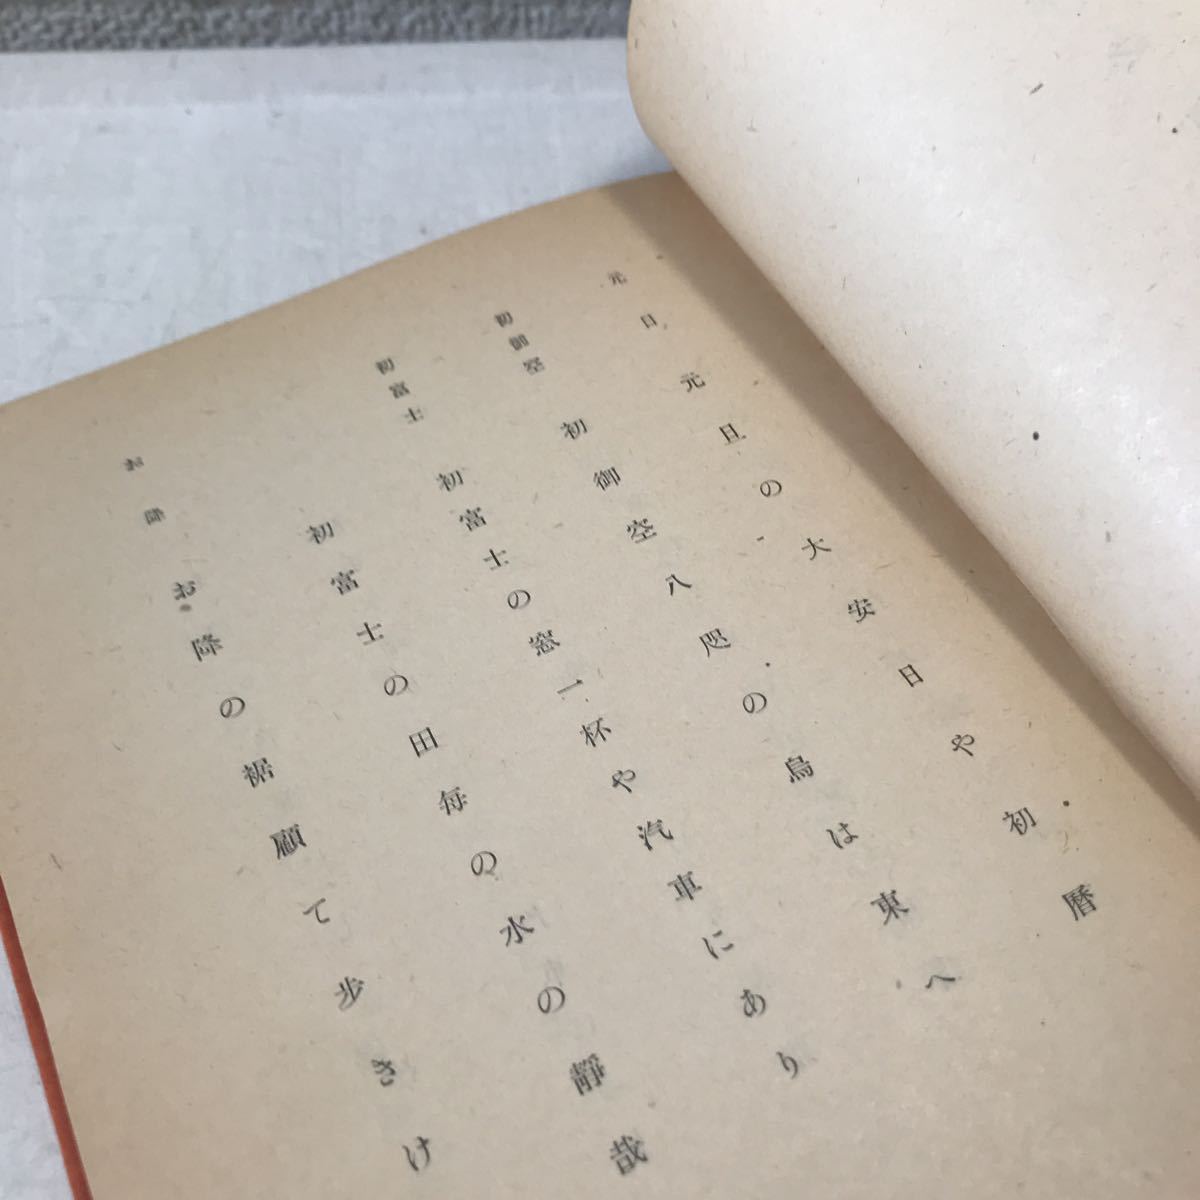 元日 元旦の大安日や初暦
初御空 初御空八咫の烏は東へ
初富士 初富士の窓一杯や汽車にあり
初富士の田毎の水の靜哉
お降 お降の裾顧て歩きけ